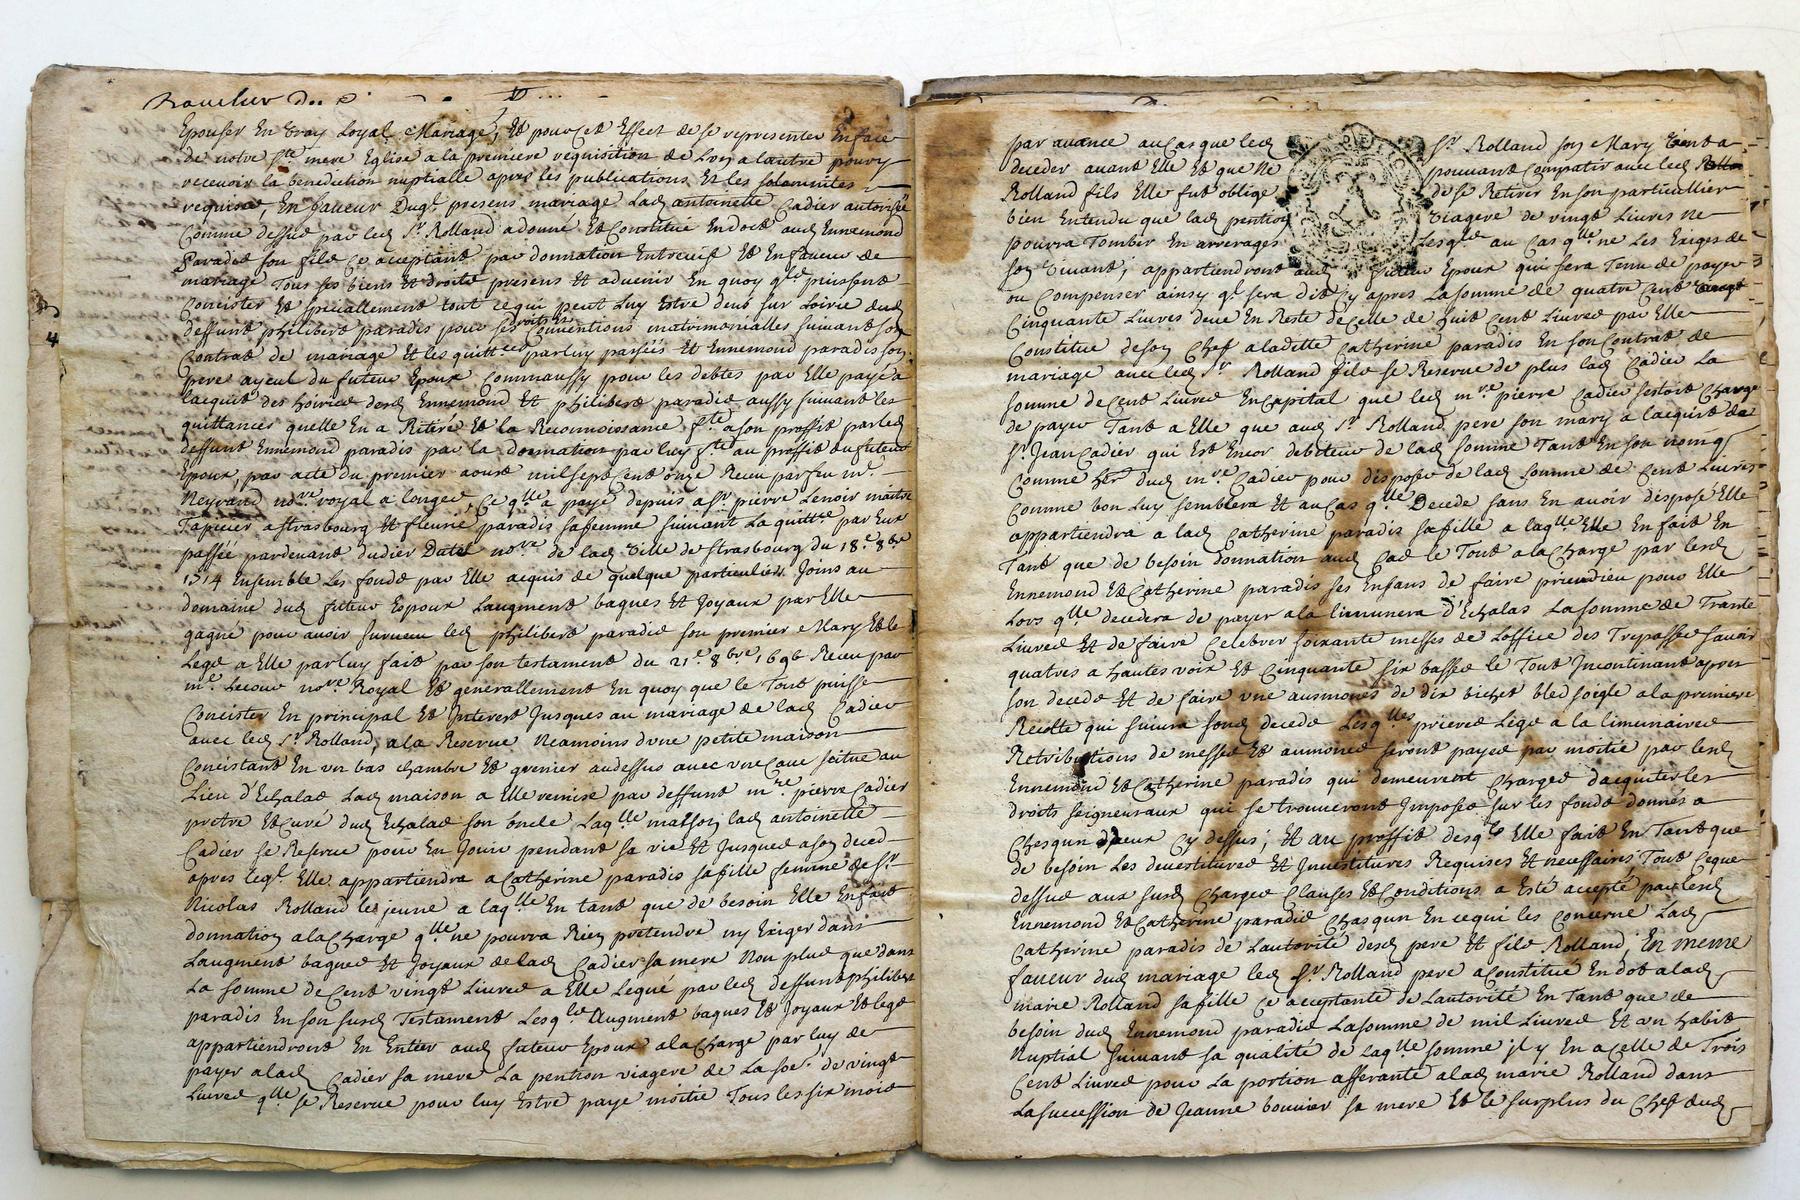 Epouser En vray Loyal Mariage, Et pour cet Effect de se representer En face
de notre Ste mere Eglise a la premiere requisition de Lun a lautre pour y
recevoir la benediction nuptialle apres les publications Et les solamnités
requise, En faveur Dugt presens mariage Lad antoinette Cadier autorisée
Comme dessus par led Sr Rolland a donné Et Constitué En dot aud Ennemond
Paradis son fils Ce aceptant par donnation Entrevif Et En faveur de
mariage Tous ses biens Et droits presens Et advenir En quoy qls puissent
Concister Et speciallement tout ce qui peut Luy Estre deub sur Loirie dud
deffunt philibert paradis pour ses droits Et Conventions matrimonialles suivant son
Contrat de mariage Et les quittces par luy passées Et Ennemond paradis son
pere ayeul du futeur Epoux Commaussy pour les debtes par Elle payé a
lacquit des hoiries desd Ennemond Et philibert paradis aussy suivant les
quittances quelle En a Retiré Et la Reconnoissance fte a son proffit par led
deffunt Ennemond paradis par la donnation par luy fte au proffit du futeur
Epoux, par acte du premier aoust mil sept cent onze Receu par feu me
Neyrand nore royal a longes, Ce qlle a payé depuis a Sr pierre Lenoir maitre
Tapicier a strasbourg Et fleurie paradis sa femme suivant La quittce par Eux
passée pardevant didier Dutel nore de lad ville de strasbourg du 18e 8bre
1714 Ensemble Les fonds par Elle acquis de quelque particuliers Joins au
domaine dud futeur Espoux Laugment bagues Et Joyaux par Elle
gagné pour avoir survecu led philibert paradis son premier Mary Et le
Legs a Elle par luy fait par son testament du 21e 8bre 1696 Receu par
me Lecour nore Royal Et generallement En quoy que le Tout puisse
Concister En principal Et Interest Jusques au mariage de lad Cadier
avec led Sr Rolland, a la Reserve Neamoins dune petite maison
Concistant En un bas chambre Et grenier audessus avec une Cave scitue au
Lieu d'Echalas Lad maison a Elle remise par deffunt mre pierre Cadier
pretre Et curé dud Echalas son oncle Laqlle maison lad antoinette
Cadier se Reserve pour En Jouir pendant sa vie Et Jusques a son deced
apres leql Elle appartiendra a Catherine paradis sa fille femme de Sr
Nicolas Rolland le jeune a laqlle En tant que de besoin Elle En fait
donnation a la Charge qlle ne pourra Rien pretendre ny Exiger dans
Laugment bagues Et Joyaux de lad Cadier sa mere Non plus que dans
La somme de Cent vingt Livres a Elle Legué par led deffunt philibert
paradis En son susd Testament Lesqls Augment bagues Et Joyaux Et legs
appartiendront En Entier aud futeur Epoux a la Charge par luy de
payer a lad Cadier sa mere La pention viagere de La soe. de vingt
Livres qlle se Reserve pour luy Estre paye moitié Tous les six mois
par avance au Cas que led Sr Rolland son Mary vient a
deceder avant Elle Et que ne pouvant Compatir avec led
Rolland fils Elle fut obligé de se Retirer En son particullier
bien Entendu que lad pention viagere de vingt Livres ne
pourra Tomber En arrerages Lesqls au Cas qlle ne Les Exiges de
son vivant; appartiendront aud futeur Epoux qui sera Tenu de payer
ou Compenser ainsy ql sera dit Cy apres La somme de quatre Cent
Cinquante Livres deue En Reste de Celle de huit Cent Livres par Elle
Constitue de son Chef a laditte Catherine paradis En son Contrat de
mariage avec led Sr Rolland fils se Reserve de plus lad Cadier La
somme de Cent Livres En Capital que led mre pierre Cadier sestoit Chargé
de payer Tant a Elle que aud Sr Rolland pere son mary a lacquit de
Sr Jean Cadier qui Est Encor debiteur de lad somme Tant En son nom q
Comme her dud mre Cadier pour disposer de lad somme de Cent Livres
Comme bon Luy semblera Et au Cas qlle Decede sans En avoir disposé Elle
appartiendra a lad Catherine paradis sa fille a laqlle Elle En fait En
Tant que de besoin donnation aud Cas le Tout a la Charge par lesd
Ennemond Et Catherine paradis ses Enfans de faire prier dieu pour Elle
Lors qlle decedera de payer a la limunera d'Echalas La somme de Trante
Livres Et de faire Celebrer soixante messes de Loffice des Trepassés savoir
quatres a hautes voix Et Cinquante six basses le Tout Incontinant apres
son deceds Et de faire une ausmones de dix bichet bled soigle a la premiere
Recolte qui suivra sond deceds Lesqlles prieres Legs a la limunaires
Retributions de messes Et aumones seront payes par moitié par lesd
Ennemond Et Catherine paradis qui demeurent Charges dacquiter les
droits seigneuraux qui se trouveront Imposes sur les fonds donnés a
Chesqun deux Cy dessus; Et au proffit desqls Elle fait En Tant que
de besoin Les devestitures Et Investitures Requises Et neussaires Tout Ceque
dessus aux susd Charges Clauses Et Conditions a Esté accepté par lesd
Ennemond Et Catherine paradis Chasqun En ce qui les Concerne Lad
Catherine paradis de Lautorité desd pere Et fils Rolland; En meme
faveur dud mariage led Sr Rolland pere a Constitué En dot a lad
marie Rolland sa fille Ce aceptante de Lautorité En Tant que de
besoin dud Ennemond paradis La somme de mil Livres Et un habit
Nuptial suivant sa qualité de Laqlle somme il y En a Celle de Trois
Cent Livres pour La portion afferante a lad marie Rolland dans
La succession de Jeanne bouvier sa mere Et le surplus du Chef dud